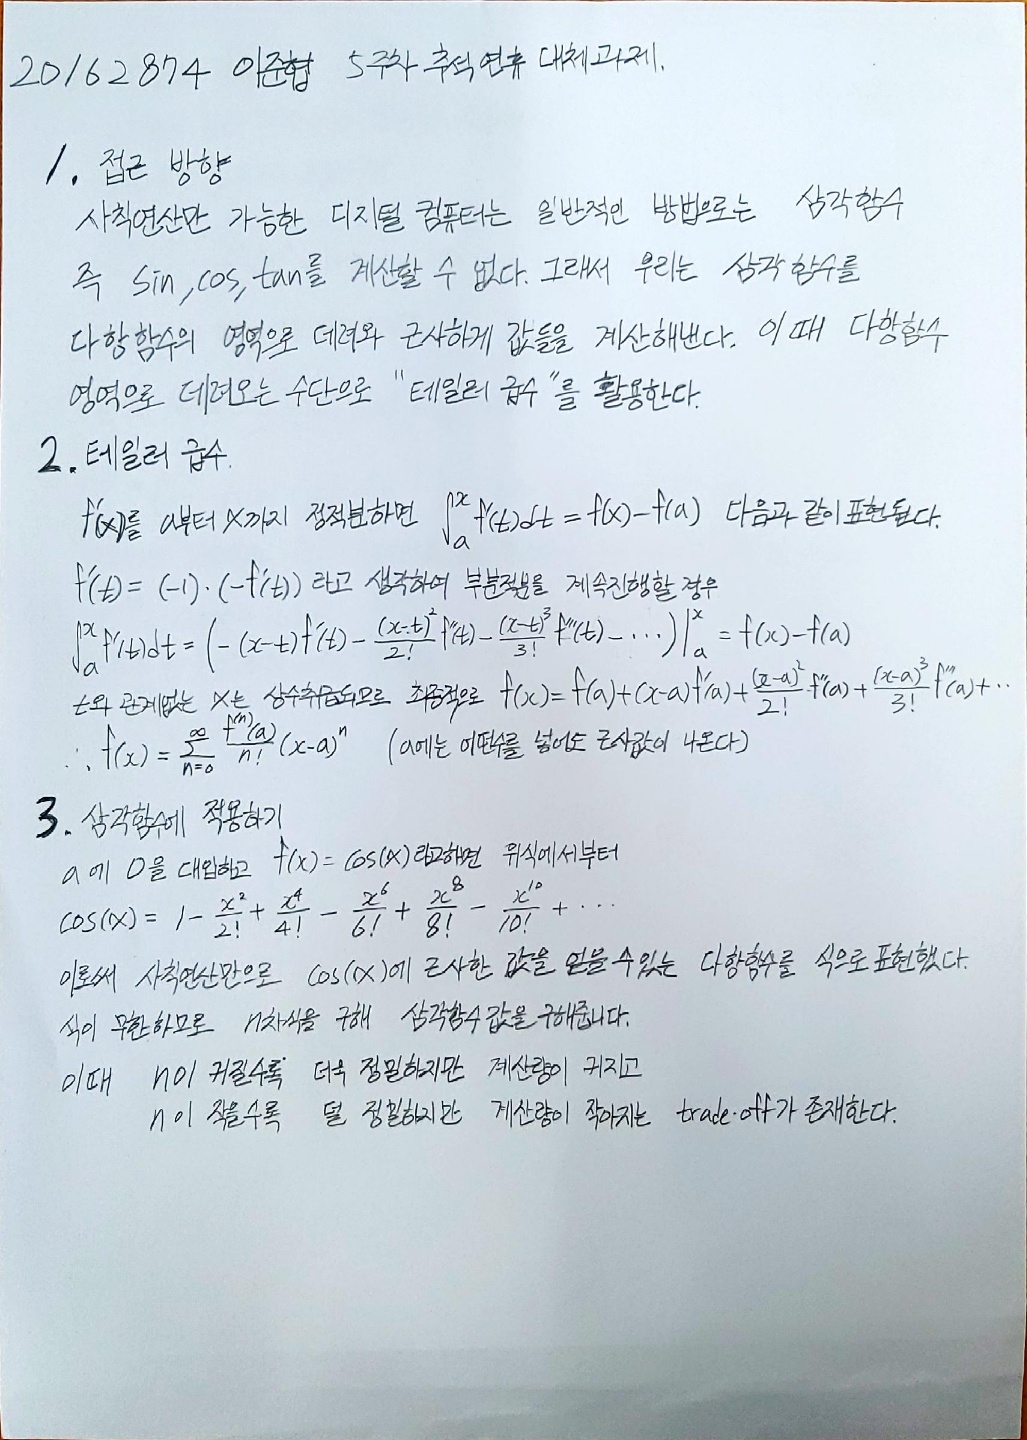 20162874 이준협 5주차 추석연휴 대체과제.
1. 접근 방향
사칙연산만 가능한 디지털 컴퓨터는 일반적인 방법으로는 삼각함수
즉 sin, cos, tan를 계산할 수 없다. 그래서 우리는 삼각함수를
다항함수의 영역으로 데려와 근사하게 값들을 계산해낸다. 이 때 다항함수
영역으로 데려오는 수단으로 "테일러 급수"를 활용한다.
2. 테일러 급수.
f'(x)를 a부터 x까지 정적분하면 ∫ₐˣ f'(t)dt = f(x)-f(a) 다음과 같이 표현된다.
f'(t) = (-1)·(-f'(t)) 라고 생각하여 부분적분을 계속진행할 경우
∫ₐˣ f'(t)dt = (-(x-t)f'(t) - (x-t)²/2! f''(t) - (x-t)³/3! f'''(t) - ···)|ₐˣ = f(x)-f(a)
t와 관계없는 x는 상수취급되므로 최종적으로 f(x) = f(a)+(x-a)f'(a)+(x-a)²/2! f''(a)+(x-a)³/3! f'''(a)+··
∴ f(x) = ∑_{n=0}^{∞} f⁽ⁿ⁾(a)/n! (x-a)ⁿ (a에는 어떤수를 넣어도 근사값이 나온다)
3. 삼각함수에 적용하기
a에 0을 대입하고 f(x) = cos(x)라고하면 위식에서부터
cos(x) = 1 - x²/2! + x⁴/4! - x⁶/6! + x⁸/8! - x¹⁰/10! + ···
이로써 사칙연산만으로 cos(x)에 근사한 값을 얻을 수 있는 다항함수를 식으로 표현했다.
식이 무한하므로 n차식을 구해 삼각함수 값을 구해줍니다.
이때 n이 커질수록 더욱 정밀하지만 계산량이 커지고
n이 작을수록 덜 정밀하지만 계산량이 작아지는 trade-off가 존재한다.